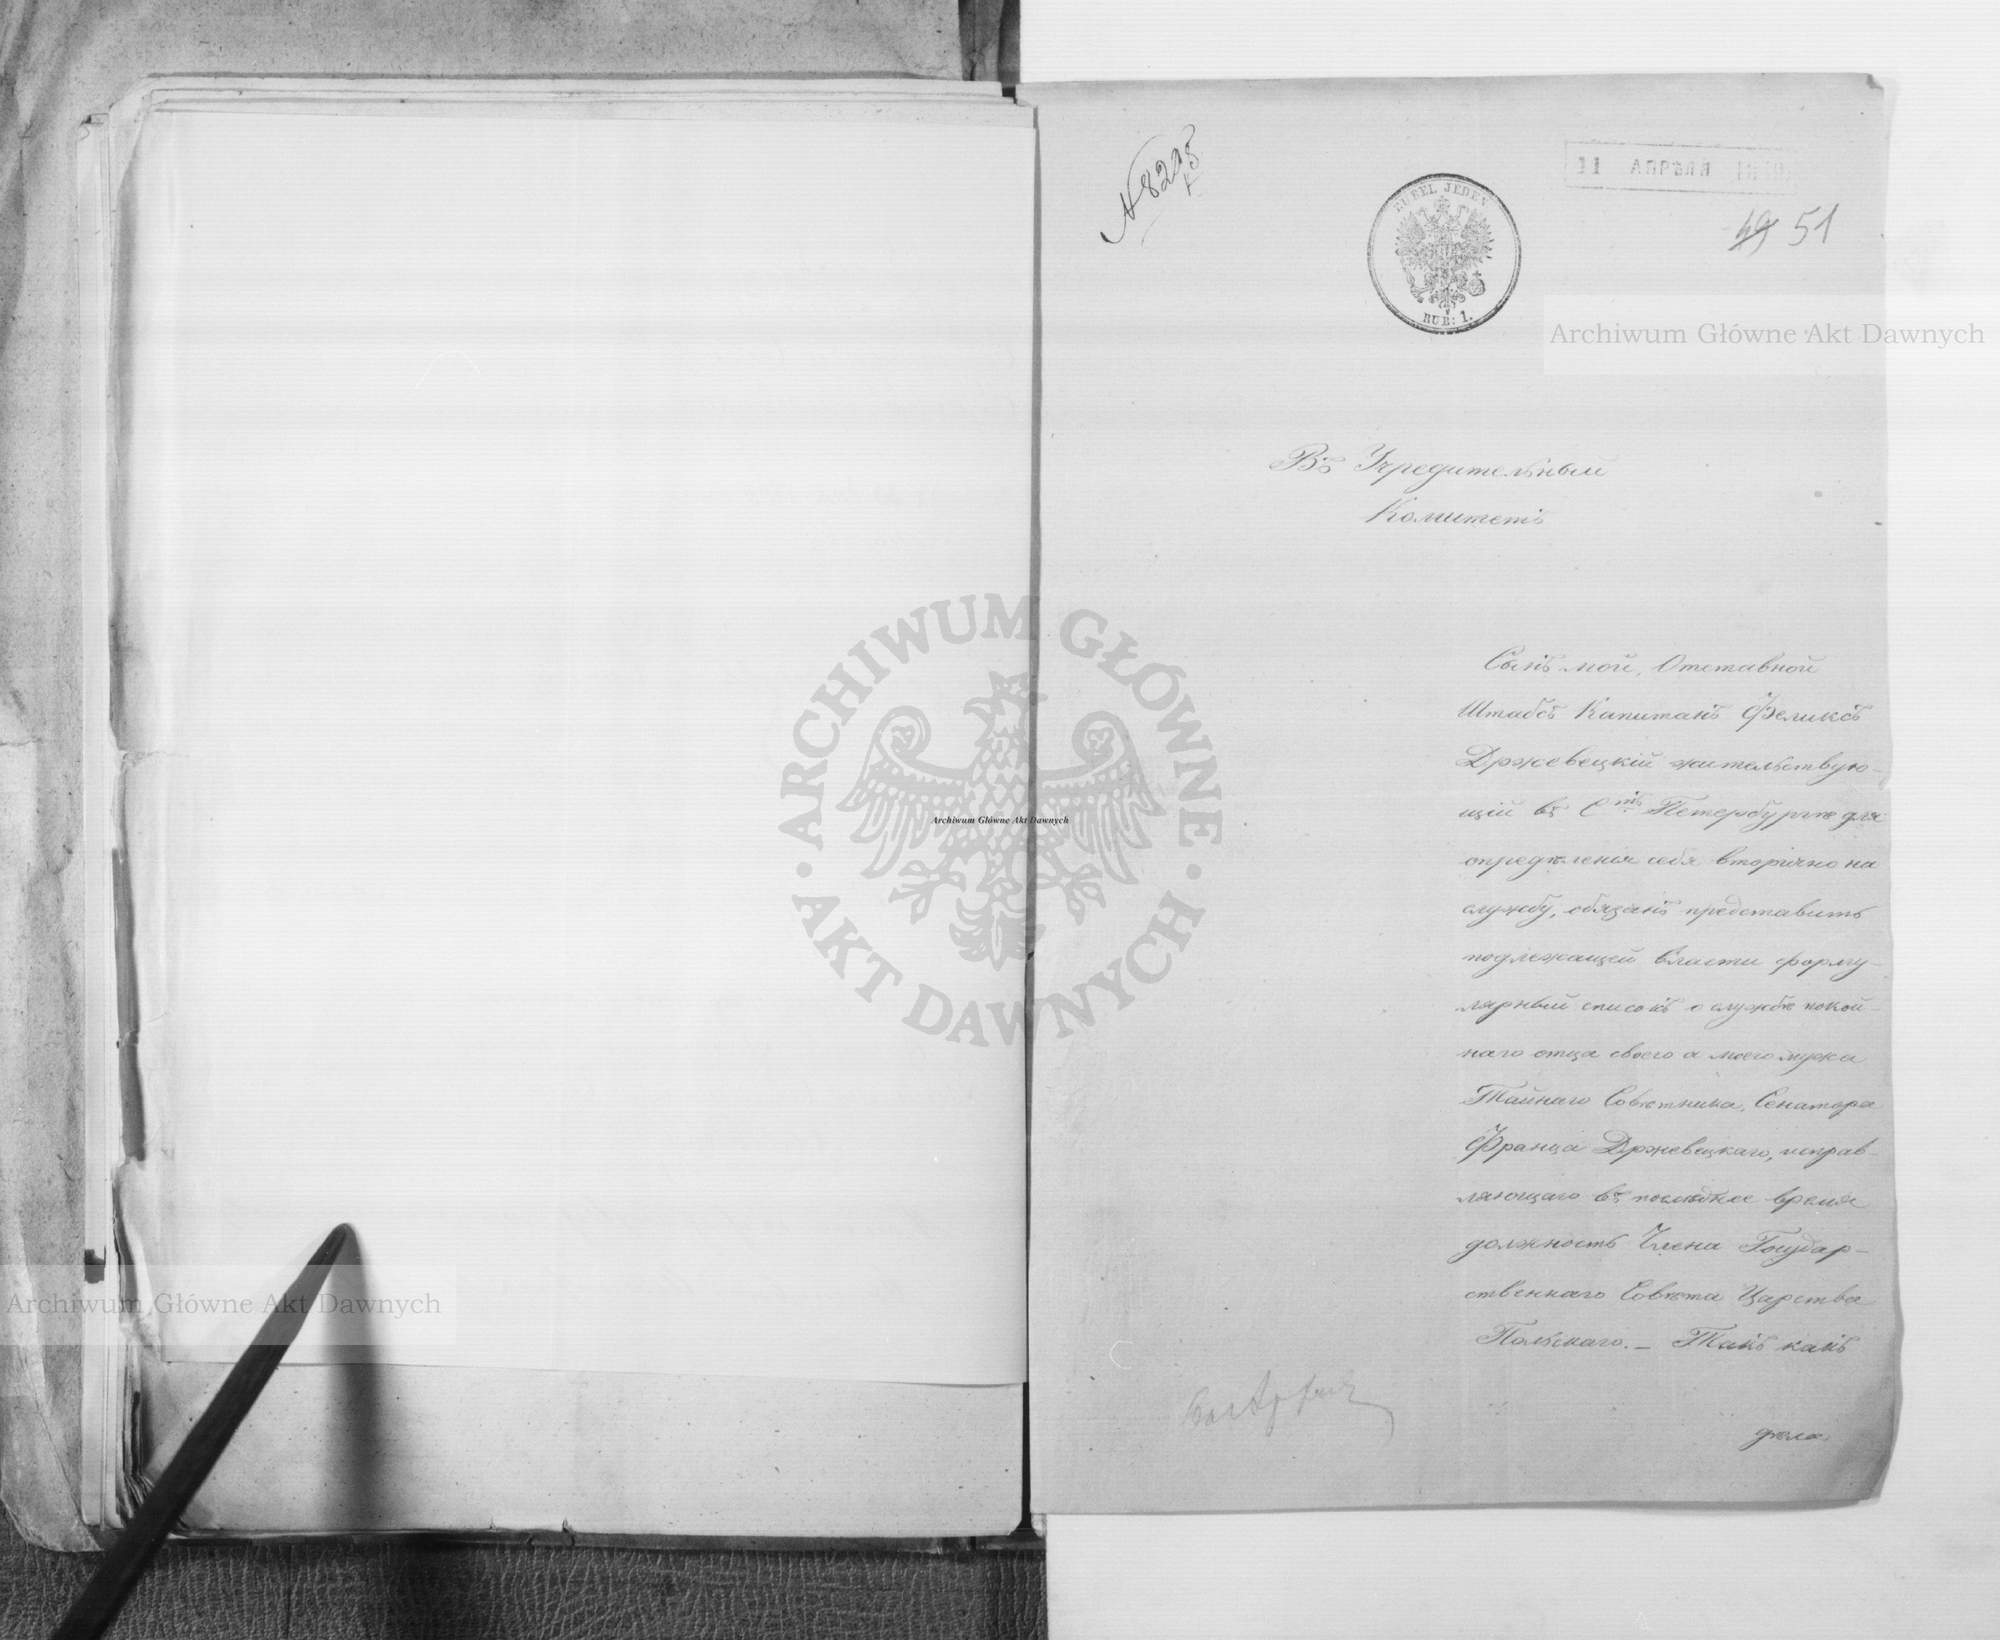 N 8208
RUBEL JEDEN
RUB: 1.
11 АПРѢЛЯ
49 51
Archiwum Główne Akt Dawnych
Въ Учредительный
Комитетъ
Сынъ мой, Отставной
Штабсъ Капитанъ Феликсъ
Држевецкій жительствую-
щій въ Стъ Петербургѣ для
опредѣленія себя вторично на
службу, обязанъ представить
подлежащей власти форму-
лярный списокъ о службѣ покой-
наго отца своего а моего мужа
Тайнаго Совѣтника, Сенатора
Франца Држевецкаго, исправ-
ляющаго въ послѣднее время
должность Члена Государ-
ственнаго Совѣта Царства
Польскаго. — Такъ какъ
дѣла
ARCHIWUM GŁÓWNE AKT DAWNYCH
Archiwum Główne Akt Dawnych
Archiwum Główne Akt Dawnych